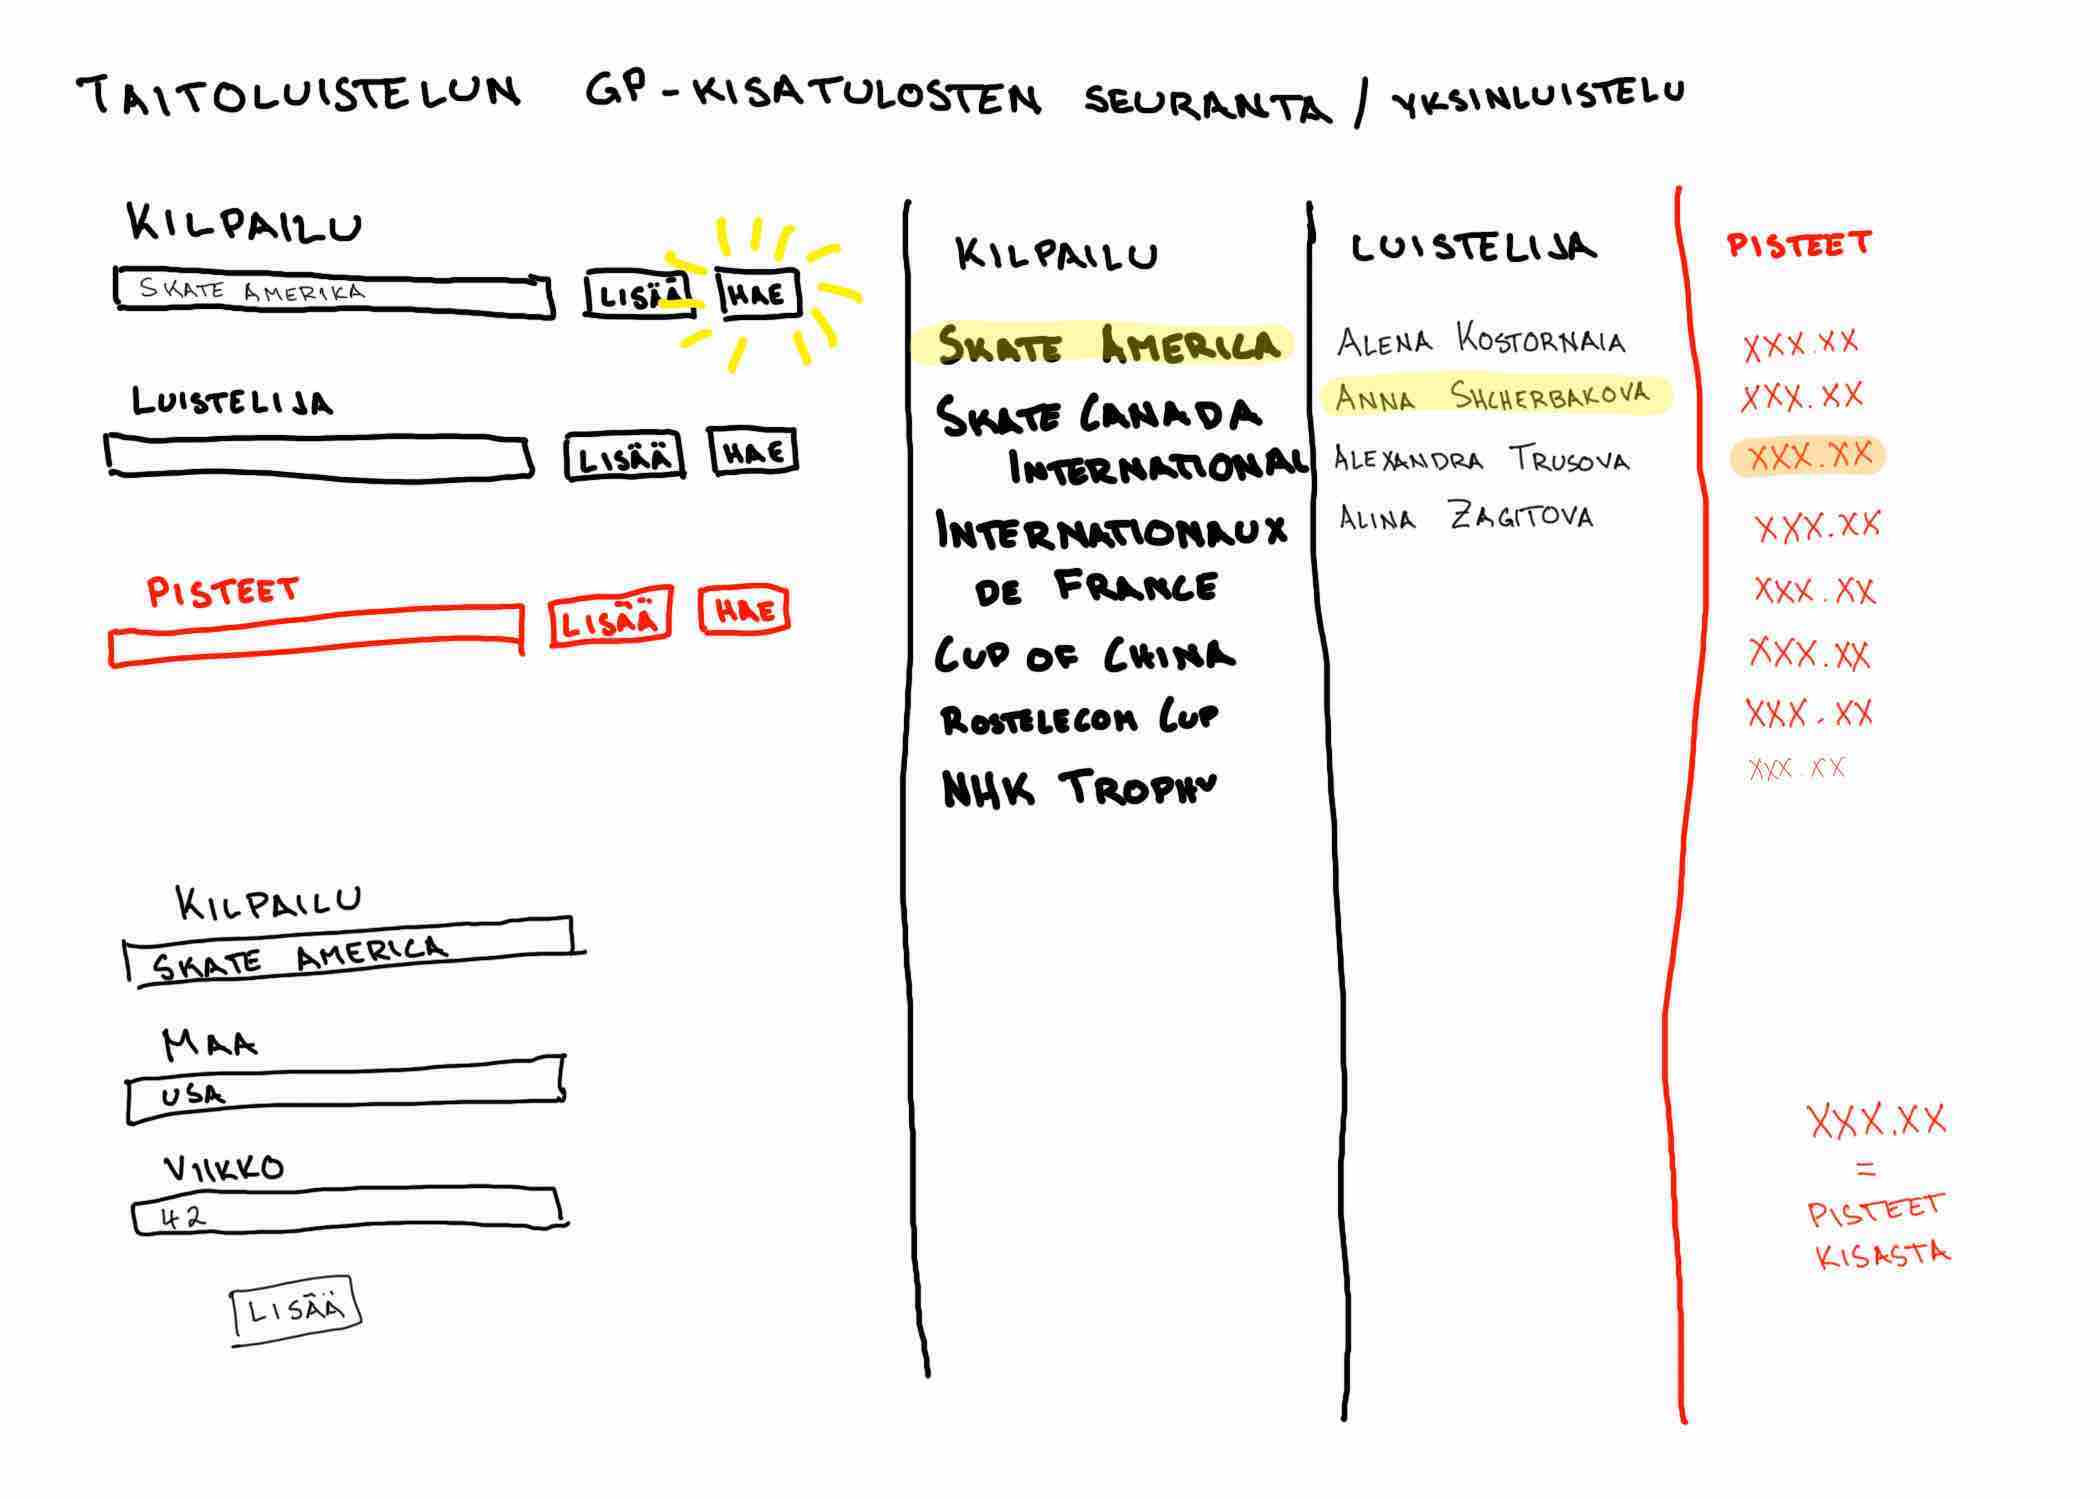 TAITOLUISTELUN GP-KISATULOSTEN SEURANTA / YKSINLUISTELU
KILPAILU
SKATE AMERIKA
LISÄÄ
HAE
LUISTELIJA
LISÄÄ
HAE
PISTEET
LISÄÄ
HAE
KILPAILU
SKATE AMERICA
MAA
USA
VIIKKO
42
LISÄÄ
KILPAILU
SKATE AMERICA
SKATE CANADA
INTERNATIONAL
INTERNATIONAUX
DE FRANCE
CUP OF CHINA
ROSTELECOM CUP
NHK TROPHY
LUISTELIJA
ALENA KOSTORNAIA
ANNA SHCHERBAKOVA
ALEXANDRA TRUSOVA
ALINA ZAGITOVA
PISTEET
XXX.XX
XXX.XX
XXX.XX
XXX.XX
XXX.XX
XXX.XX
XXX.XX
XXX.XX
XXX.XX
=
PISTEET
KISASTA